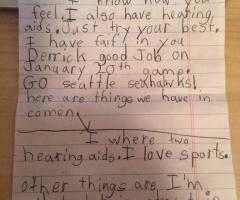 I know how you
feel. I also have heating
aids. Just try your best.
I have fait in you
Derrick good Job on
January 20th game.
GO seattle seahawks!
here are things we have in
comen.
I where two
hearing aids. I love sports.
other things are I'm.